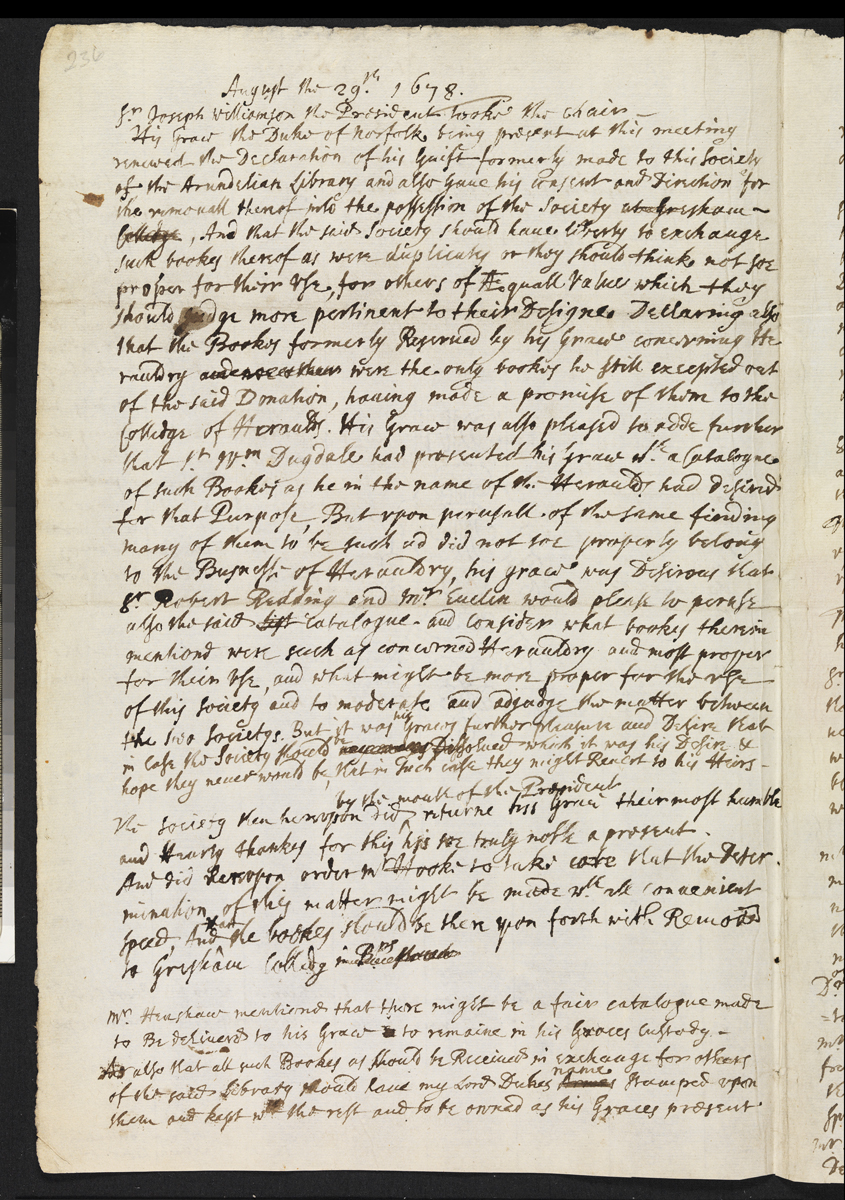 236
August the 29th. 1678.
Sr Joseph Williamson the President tooke the chair
His Grace the Duke of Norfolk being present at this meeting
renewed the Declaration of his Guift formerly made to this Society
of the Arundelian Library and also gave his consent and Direction for
the removall thereof into the possession of the Society at Gresham
Colledge, And that the said Society should have liberty to exchange
such bookes thereof as were duplicats or they should think not soe
proper for their Use, for others of Æquall Value which they
should judge more pertinent to their Designe. Declaring also
that the Bookes formerly Reserved by his Grace concerning He
rauldry and noe others were the only bookes he still excepted out
of the said Donation, having made a promise of them to the
Colledge of Heraulds. His Grace was also pleased to adde further
that Sr Wm Dugdale had presented his Grace wth a Catalogue
of such Bookes as he in the name of the Heraulds had desired
for that Purpose, But upon perusall of the same finding
many of them to be such as did not soe properly belong
to the Busnesse of Herauldry, his grace was Desirous that
Sr Robert Redding and Mr Euelin would please to peruse
also the said list Catalogue and consider what bookes therein
mentiond were such as concerned Herauldry and most proper
for their Use, and what might be more proper for the use
of this society and to moderate and adjudge the matter between
the two Societys. But it was his Graces further pleasure and Desire that
in Case the Society should be Dissolued which it was his Desire &
hope they never would be, that in such case they might Revert to his Heirs
by the mouth of the President
The Society then hereupon did returne his Grace their most humble
and Hearty thankes for this his soe truly noble a present.
And did hereupon order mr Hooke to take care that the Deter
mination of this matter might be made wth all convenient
speed, And the bookes should be there upon forth with Remoud
to Gresham Colledg in
Mr. Henshaw mentiond that there might be a fair catalogue made
to Be deliverd to his Grace to remaine in his Graces Custody
As also that all such Bookes as should be Received in exchange for others
of the said Library should have my Lord Dukes name Stamped upon
them and kept wth the rest and to be ownd as his Graces present